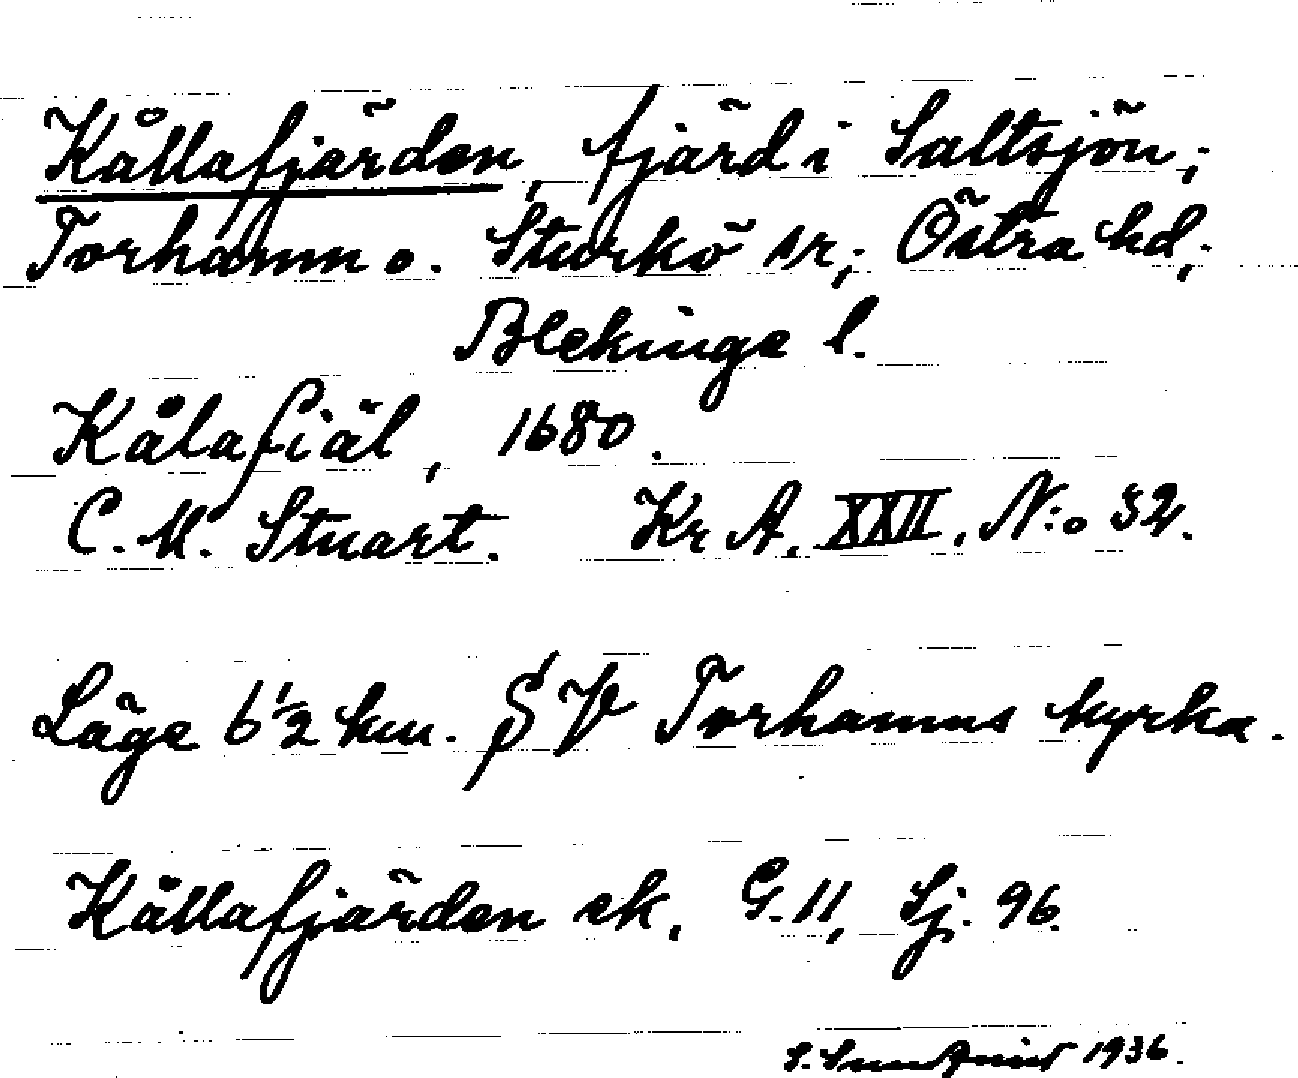 Kållafjärden, fjärd i Saltsjön;
Torhamn o. Sturkö sr; Östra hd;
Blekinge l.
Kålafiäl, 1680.
C. M. Stuart. Kr A. XXII, N:o 32.
Läge 6 1/2 km. SV Torhamns kyrka.
Kållafjärden ek. G. 11, Sj. 96.
S. 1936.